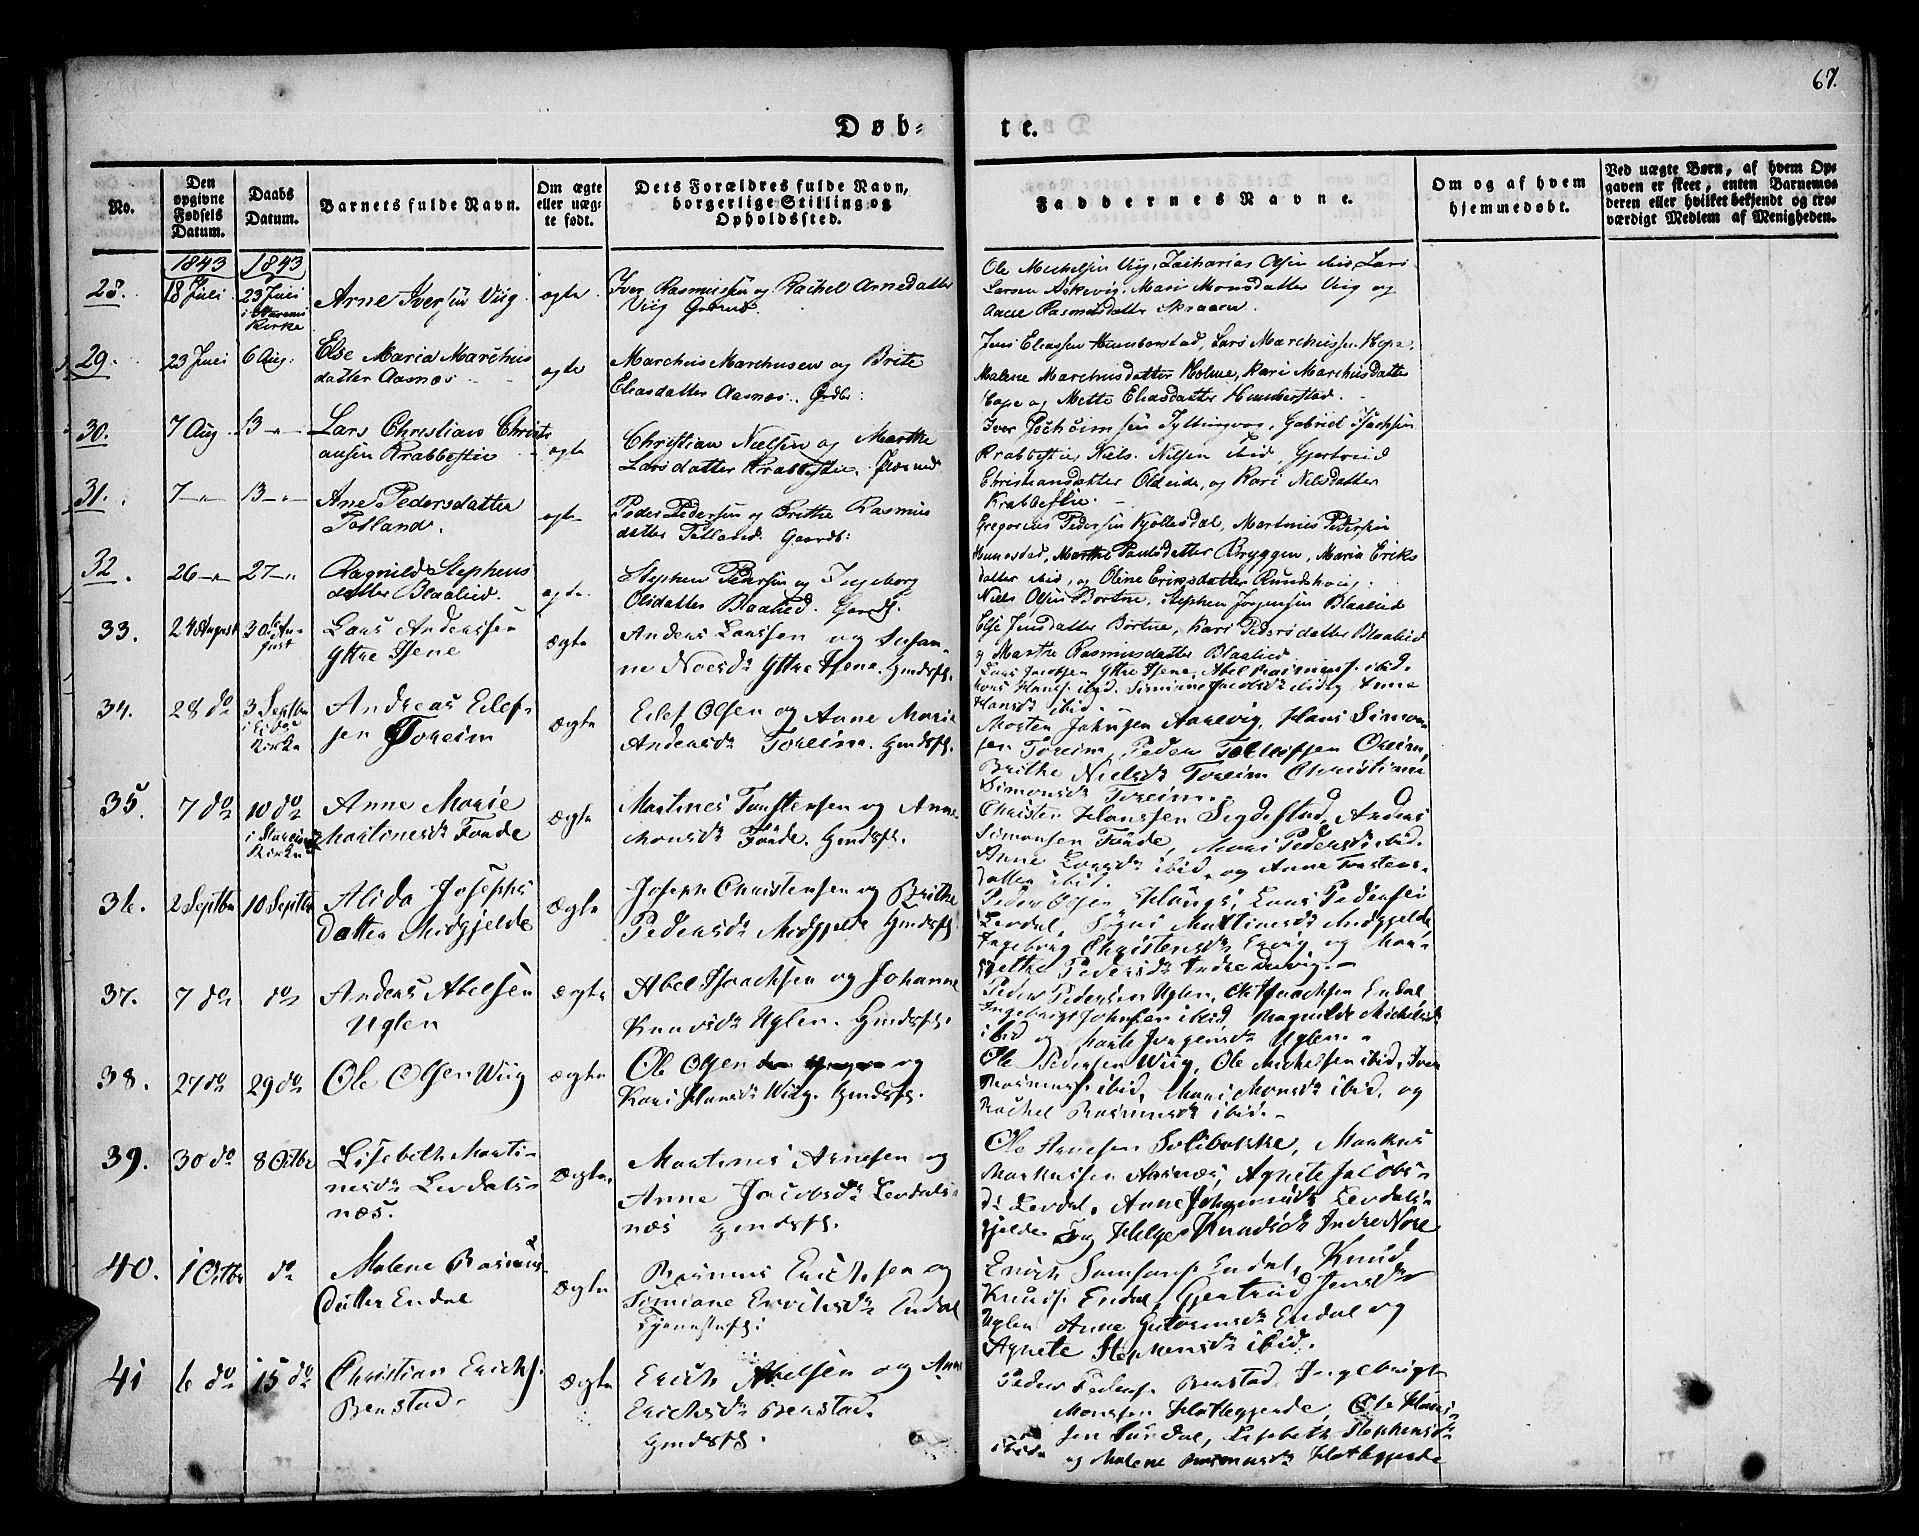 67.
Døb-
te.
No.
Den opgivne Fødsels Datum.
Daabs Datum.
Barnets fulde Navn.
Om ægte eller uægte født.
Dets Forældres fulde Navn, borgerlige Stilling og Opholdssted.
Faddernes Navne.
Om og af hvem hjemmedøbt.
Ved uægte Børn, af hvem Opgaven er skeet, enten Barnemoderen eller hvilket bekjendt og troværdigt Medlem af Menigheden.
1843
1843
28.
18 Juli
23 Juli
Kirke
Arne Iversen Viig
ægte
Iver Rasmussen og Rachel Arnedatter
Viig
Ole Michelsen Viig, Zacharias Olsen ibid, Lars
Larsen Askevig, Mari Monsdatter Viig og
Rasmusdatter Skraaen.
29.
23 Juli
6 Aug.
Else Maria Marchus
datter Aasnæs
ægte
Marchus Marchusen og Brite
Eliasdatter Aasnæs.
Jens Eliassen Humberstad, Lars Marchussen Hope,
Malene Marchusdatter Holme, Kari Marchusdatter
Hope og Mette Eliasdatter Humberstad.
30.
7 Aug.
13 —"—
Lars Christian Christi
ansen Krabbestie
ægte
Christian Nielsen og Marthe
Larsdatter Krabbestie.
Iver Jochoimsen Gabriel Isachsen
Krabbestie, Niels Nilsen ibid, Gjertrud
Christiansdatter Oldeide, og Kari Nilsdatter
Krabbestie.
31.
7 —"—
13 —"—
Ane Pedersdatter
Totland.
ægte
Peder Pedersen og Brithe Rasmus
datter Totland. Gaardb:
Gregorius Pedersen Kjøllesdal, Martinus Pedersen
Hennestad, Marthe Paulsdatter Bryggen, Maria Eriks
datter ibid, og Oline Eriksdatter Rundehoug.
32.
26 —"—
27 —"—
Ragnild Stephens
datter Blaalied.
ægte.
Stephen Pedersen og Ingeborg
Olsdatter Blaalied. Gaardb.
Niels Olsen Bortne, Stephen Jørgensen Blaalied
Else Jensdatter Bortne, Kari Pedersdatter Blaalied
og Marthe Rasmusdatter Blaalied.
33.
24 August
30te Au-
gust
Lars Anderssen
Yttre Isene
ægte
Anders Larssen og Susan-
ne Yttre Isene.
Lars Jacobsen Yttre Isene, Abel Rasmuss. ibid.
Hans Hanss. ibid. Simine ibid og Anna
Hansd. ibid.
34.
28 do
3 Septbr
Kirke
Andreas Eilef-
sen Toreim
ægte
Eilef Olsen og Anne Marie
Andersdr Toreim.
Morten Johnsen Aarevig, Hans Simon-
sen Toreim, Peder Tollefsen Oreim,
Brithe Nielsdr Toreim Christiane
Simonsdr Toreim.
35.
7 do
10 do
Kirke
Anne Marie
Martinesdr Førde
ægte
Martines Torstensen og Anne
Monsdr Førde.
Christen Hanssen Sigdestad, Anders
Simonsen Førde, Mari Pedersdr ibid.
Anne Larsdr ibid. og Anne Torstens-
datter ibid.
36.
2 Septbr
10 Septbr
Alida Josephs
Datter Midgjelde
ægte
Joseph Christensen og Brithe
Pedersdr Midgjelde
Peder Olsen Haugs, Lars Pedersen
Levdal, Martinusdr Midgjelde
Ingeborg Christensdr og Mar-
grethe Pedersdr
37.
7 do
do
Anders Abelsen
Uglen
ægte
Abel Isachsen og Johanne
Knudsdr Uglen.
Peder Pedersen Uglen, Ole Isachsen Endal
Ingebrigt Johnsen ibid, Ragnilde Michelsdr
ibid og Uglen.
38.
27 do
29 do
Ole Olsen Wiig
ægte
Ole Olsen og
Kari Hansdr Wiig.
Ole Pedersen Wiig, Ole Michelsen ibid, Iver
Rasmuss. ibid, Mari Monsdr ibid, og
Rachel Rasmusdr ibid.
39.
30 do
8 Octbr
Lisebeth Marti-
nesdr Levdals-
næs.
ægte.
Martines Arnesen og
Anne Jacobsdr Levdals-
næs
Ole Arnesen Markus
Markussen Aasnæs, Agnete Jacobs-
dr Levdal, Anne Levdals-
gjelde og Helge Knudsdr Indre Nore
40.
1 Octbr
do
Malene Rasmus
Datter Endal
ægte
Rasmus Erichsen og
Simiane Erichsdr Endal
Erich Samsons. Endal, Knud
Knuds. Endal, Gjertrud Jensdr
Uglen Anne Endal og
Agnete Stephensdr ibid.
41
6 do
15 do
Christian Erichs.
Benstad.
ægte
Erich Abelsen og Anne
Erichsdr Benstad.
Peder Peders. Benstad Ingebrigt
Monssen Ole Hans-
sen Lisebeth Stephensdr
ibid
og Malene Rasmusdr